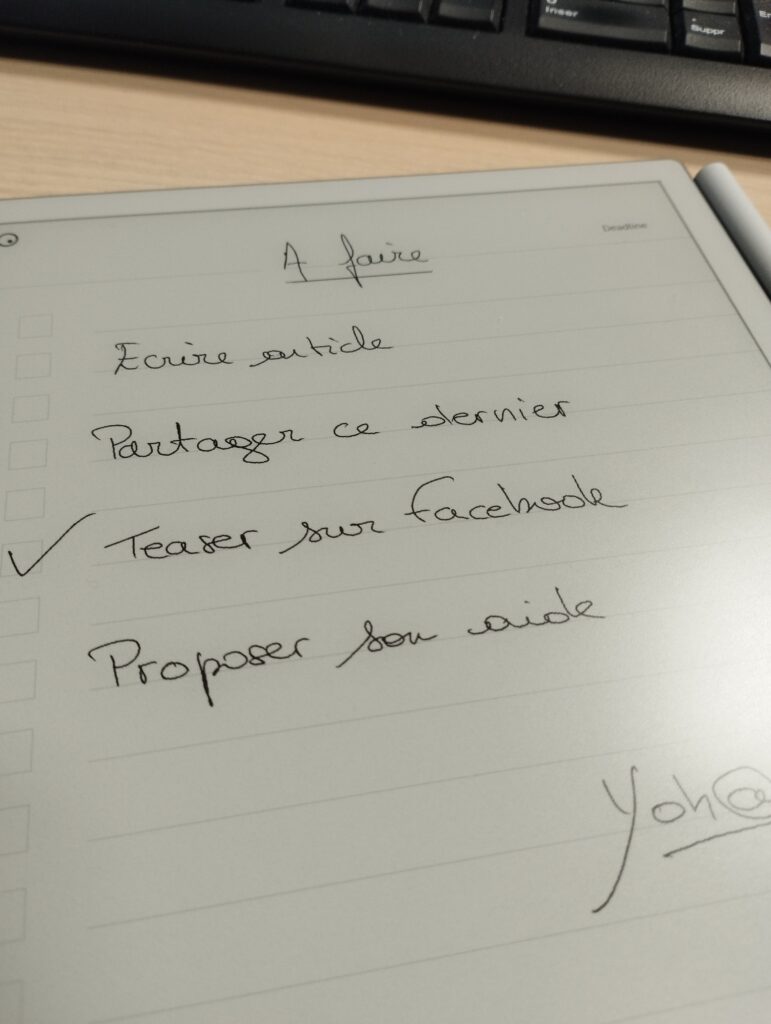 Inser
Suppr
Deadline
A faire
Ecrire article
Partager ce dernier
Teaser sur facebook
Proposer son aide
Yoh@